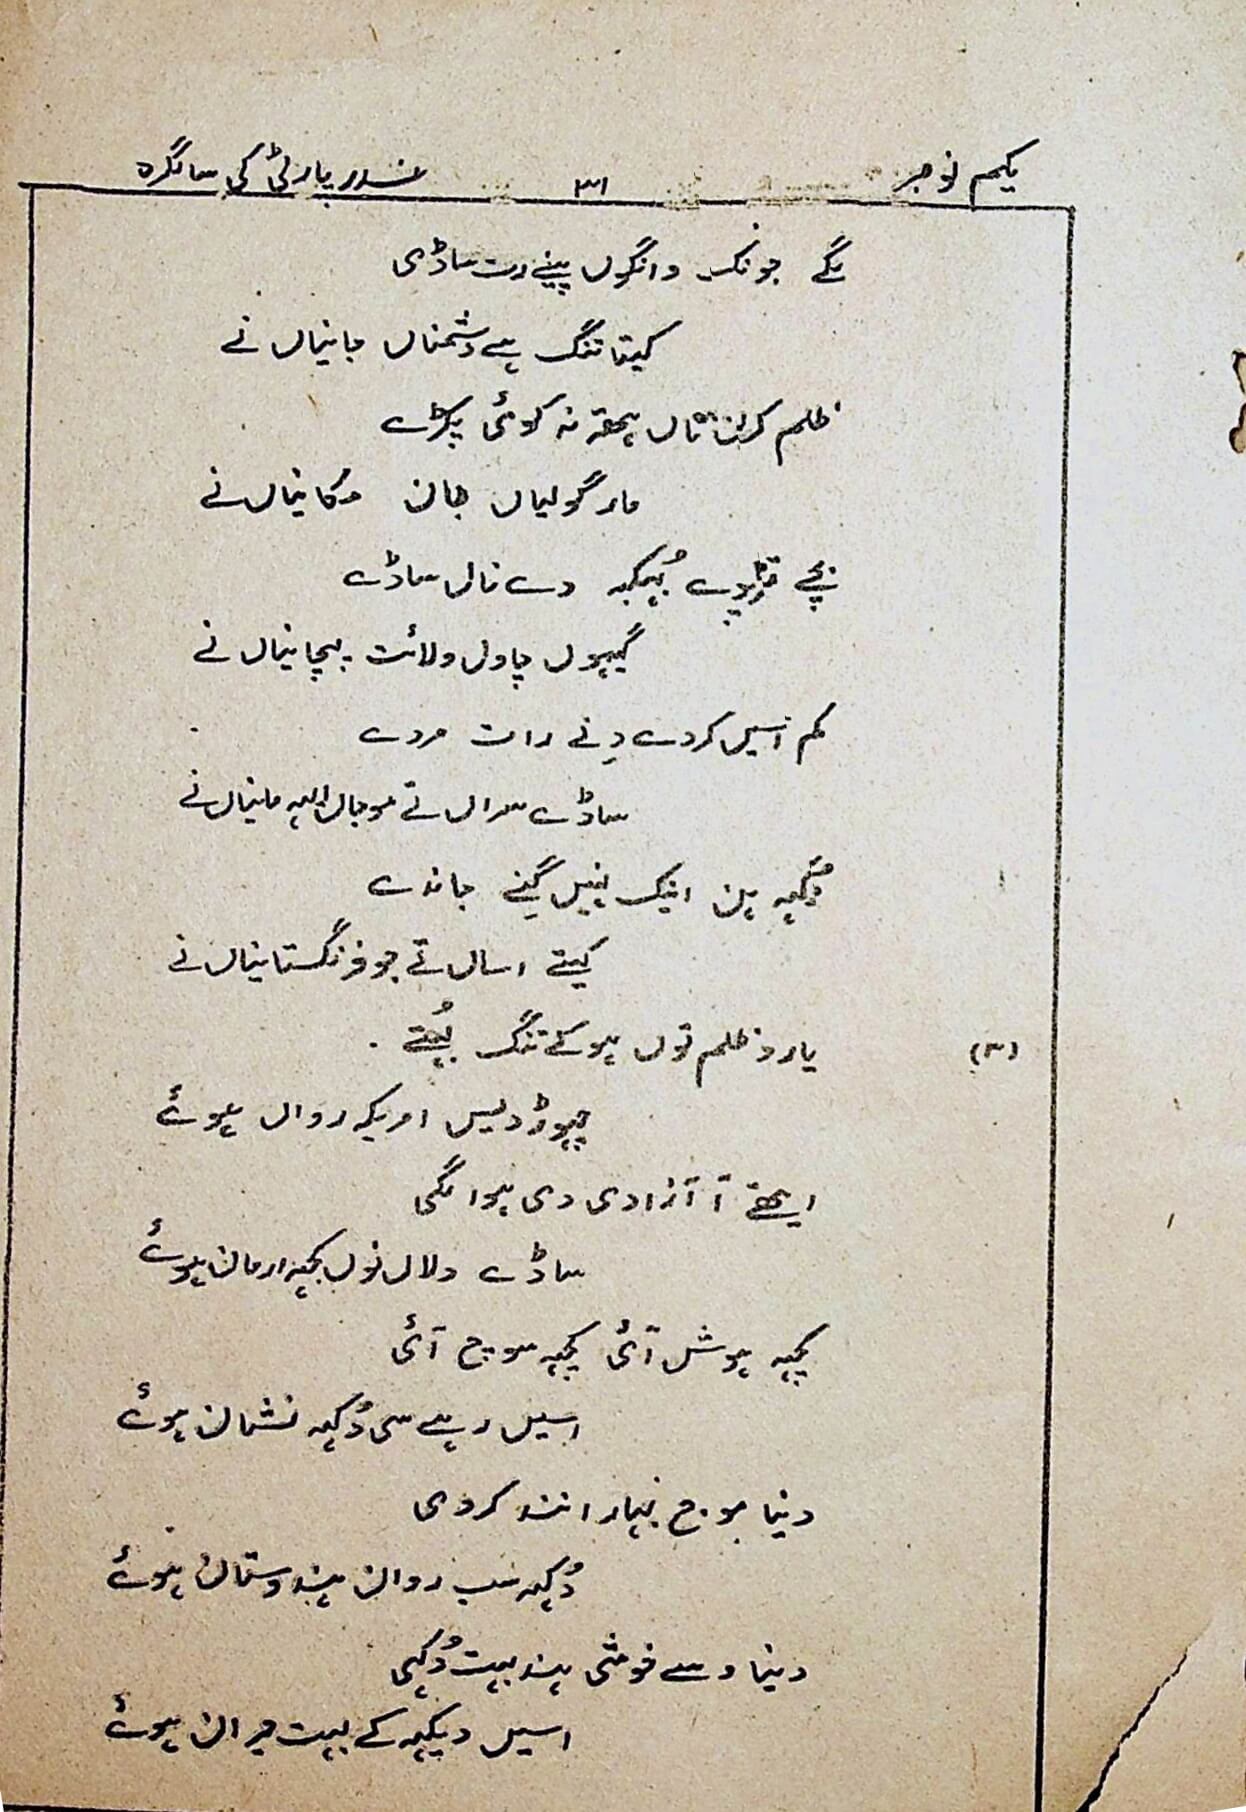 یکم نومبر ۳۱ غدر پارٹی کی سالگرہ
لگے جونک وانگوں پینے رت ساڈی
کیتا تنگ ہے دشمناں جانیاں نے
ظلم کرن تاں ہتھ نہ کوئی پکڑے
مار گولیاں جان مکانیاں نے
بچے تڑپدے بُھکھ دے نال ساڈے
گیہوں چاول ولائت پہچانیاں نے
کم اسیں کردے دِنے رات مردے
ساڈے سراں تے موجاں ایہہ مانیاں نے
دُکھ ہن انیک نہیں گِنے جاندے
کیتے اساں تے جو فرنگستانیاں نے
(۳) یارو ظلم توں ہو کے تنگ بُھتے
چھوڑ دیس امریکہ رواں ہوئے
ایتھے آ آزادی دی ہوا لگی
ساڈے دلاں نوں کجھ ارمان ہوئے
کجھ ہوش آئی کجھ سوچ آئی
اسیں رہے سی دُکھ نشان ہوئے
دنیا موج بہار انند کردی
دُکھ سب روان ہندوستان ہوئے
دنیا وسے خوشی ہند بہت دُکھی
اسیں دیکھ کے بہت حیران ہوئے